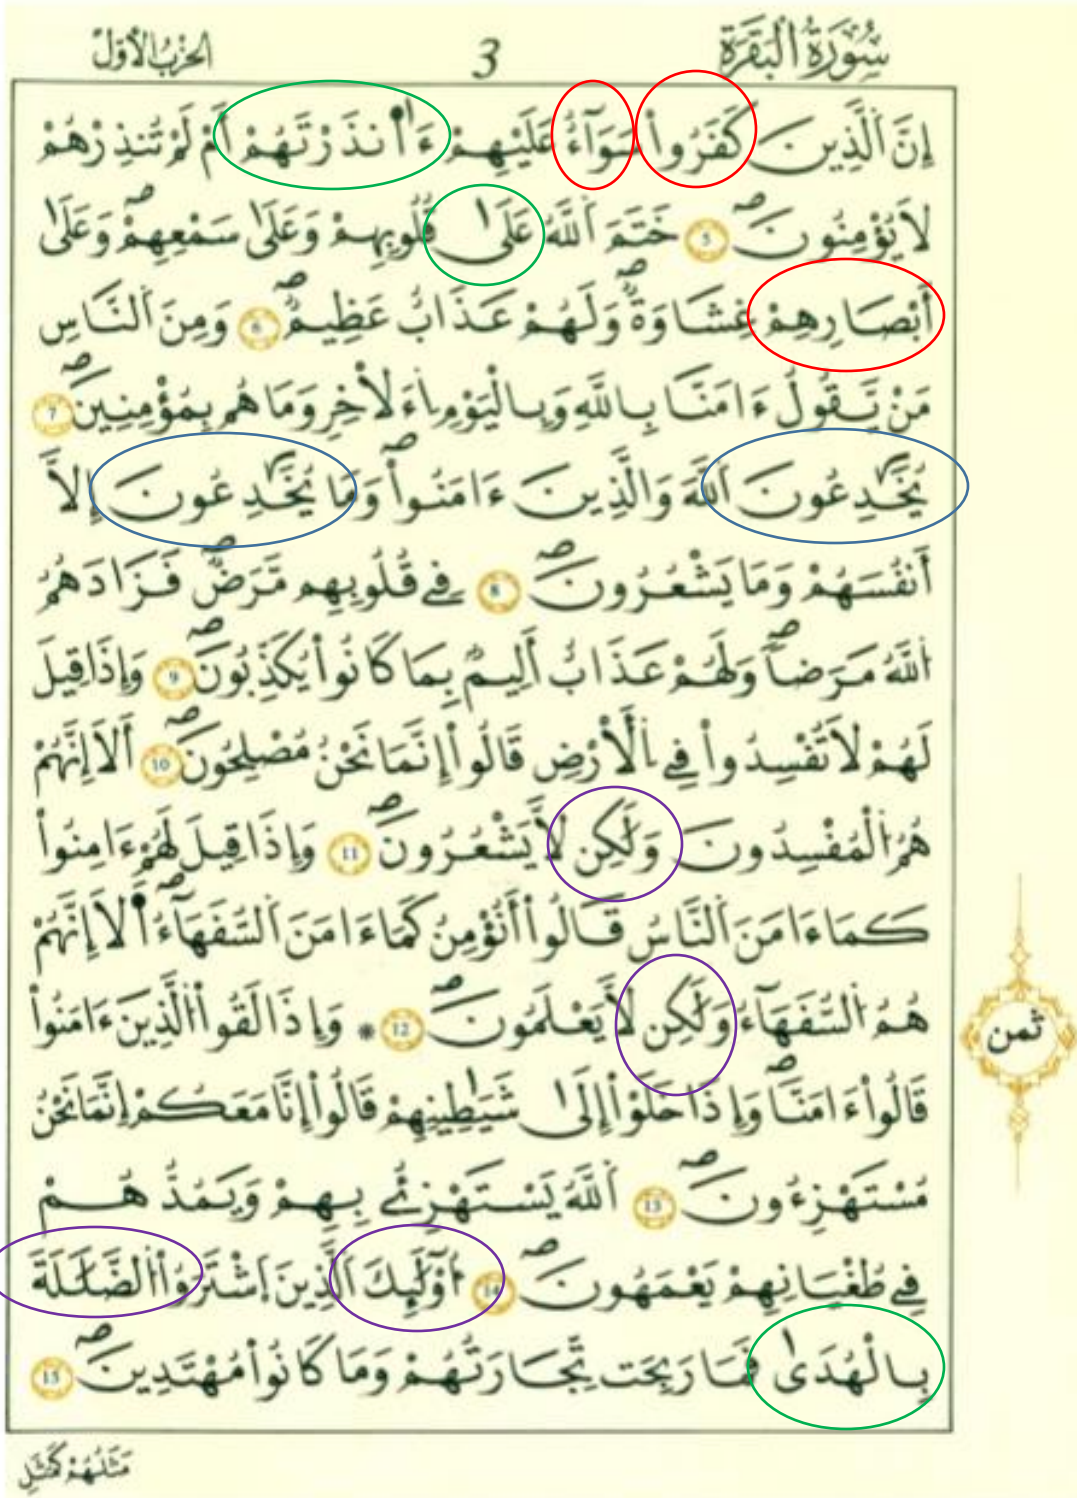 سُورَةُ الْبَقَرَةِ
3
الحزب الأول
إِنَّ اَلذِينَ كَفَرُواْ سَوَآءٌ عَلَيْهِمُۥٓ ءَا۬نذَرْتَهُمُۥٓ أَمْ لَمْ تُنذِرْهُمْ
لَا يُؤْمِنُونَۖ 5 خَتَمَ اَللَّهُ عَلَىٰ قُلُوبِهِمْ وَعَلَىٰ سَمْعِهِمْۖ وَعَلَىٰ
أَبْصَٰرِهِمْ غِشَٰوَةٞۖ وَلَهُمْ عَذَابٌ عَظِيمٞۖ 6 وَمِنَ اَلنَّاسِ
مَنْ يَّقُولُ ءَامَنَّا بِاللَّهِ وَبِالْيَوْمِ اِ۬ءَلَاْخِرِ وَمَا هُم بِمُؤْمِنِينَۖ 7
يُخَٰدِعُونَ اَللَّهَ وَالذِينَ ءَامَنُواْۖ وَمَا يُخَٰدِعُونَ إِلَّا
أَنفُسَهُمْ وَمَا يَشْعُرُونَۖ 8 فِے قُلُوبِهِم مَّرَضٞۖ فَزَادَهُمُ
اُللَّهُ مَرَضاٗۖ وَلَهُمْ عَذَابٌ أَلِيمُۢ بِمَا كَانُواْ يُكَذِّبُونَۖ 9 وَإِذَا قِيلَ
لَهُمْ لَا تُفْسِدُواْ فِے اِ۬لَارْضِ قَالُواْ إِنَّمَا نَحْنُ مُصْلِحُونَۖ 10 أَلَا إِنَّهُمْ
هُمُ اُلْمُفْسِدُونَ وَلَٰكِن لَّا يَشْعُرُونَۖ 11 وَإِذَا قِيلَ لَهُمُۥٓ ءَامِنُواْ
كَمَا ءَامَنَ اَلنَّاسُ قَالُواْ أَنُؤْمِنُ كَمَا ءَامَنَ اَلسُّفَهَآءُۖ اَ۬لَا إِنَّهُمْ
هُمُ اُلسُّفَهَآءُ وَلَٰكِن لَّا يَعْلَمُونَۖ 12 * وَإِذَا لَقُواْ اُلذِينَ ءَامَنُواْ
ثمن
قَالُواْ ءَامَنَّاۖ وَإِذَا خَلَوْاْ إِلَىٰ شَيَٰطِينِهِمْ قَالُواْ إِنَّا مَعَكُمْ إِنَّمَا نَحْنُ
مُسْتَهْزِءُونَۖ 13 اَللَّهُ يَسْتَهْزِئُ بِهِمْ وَيَمُدُّهُمْ
فِے طُغْيَٰنِهِمْ يَعْمَهُونَۖ 14 أُوْلَٰٓئِكَ اَلذِينَ اَشْتَرَوُاْ اُلضَّلَٰلَةَ
بِالْهُدَىٰ فَمَا رَبِحَت تِّجَٰرَتُهُمْ وَمَا كَانُواْ مُهْتَدِينَۖ 15
مَثَلُهُمْ كَمَثَلِ